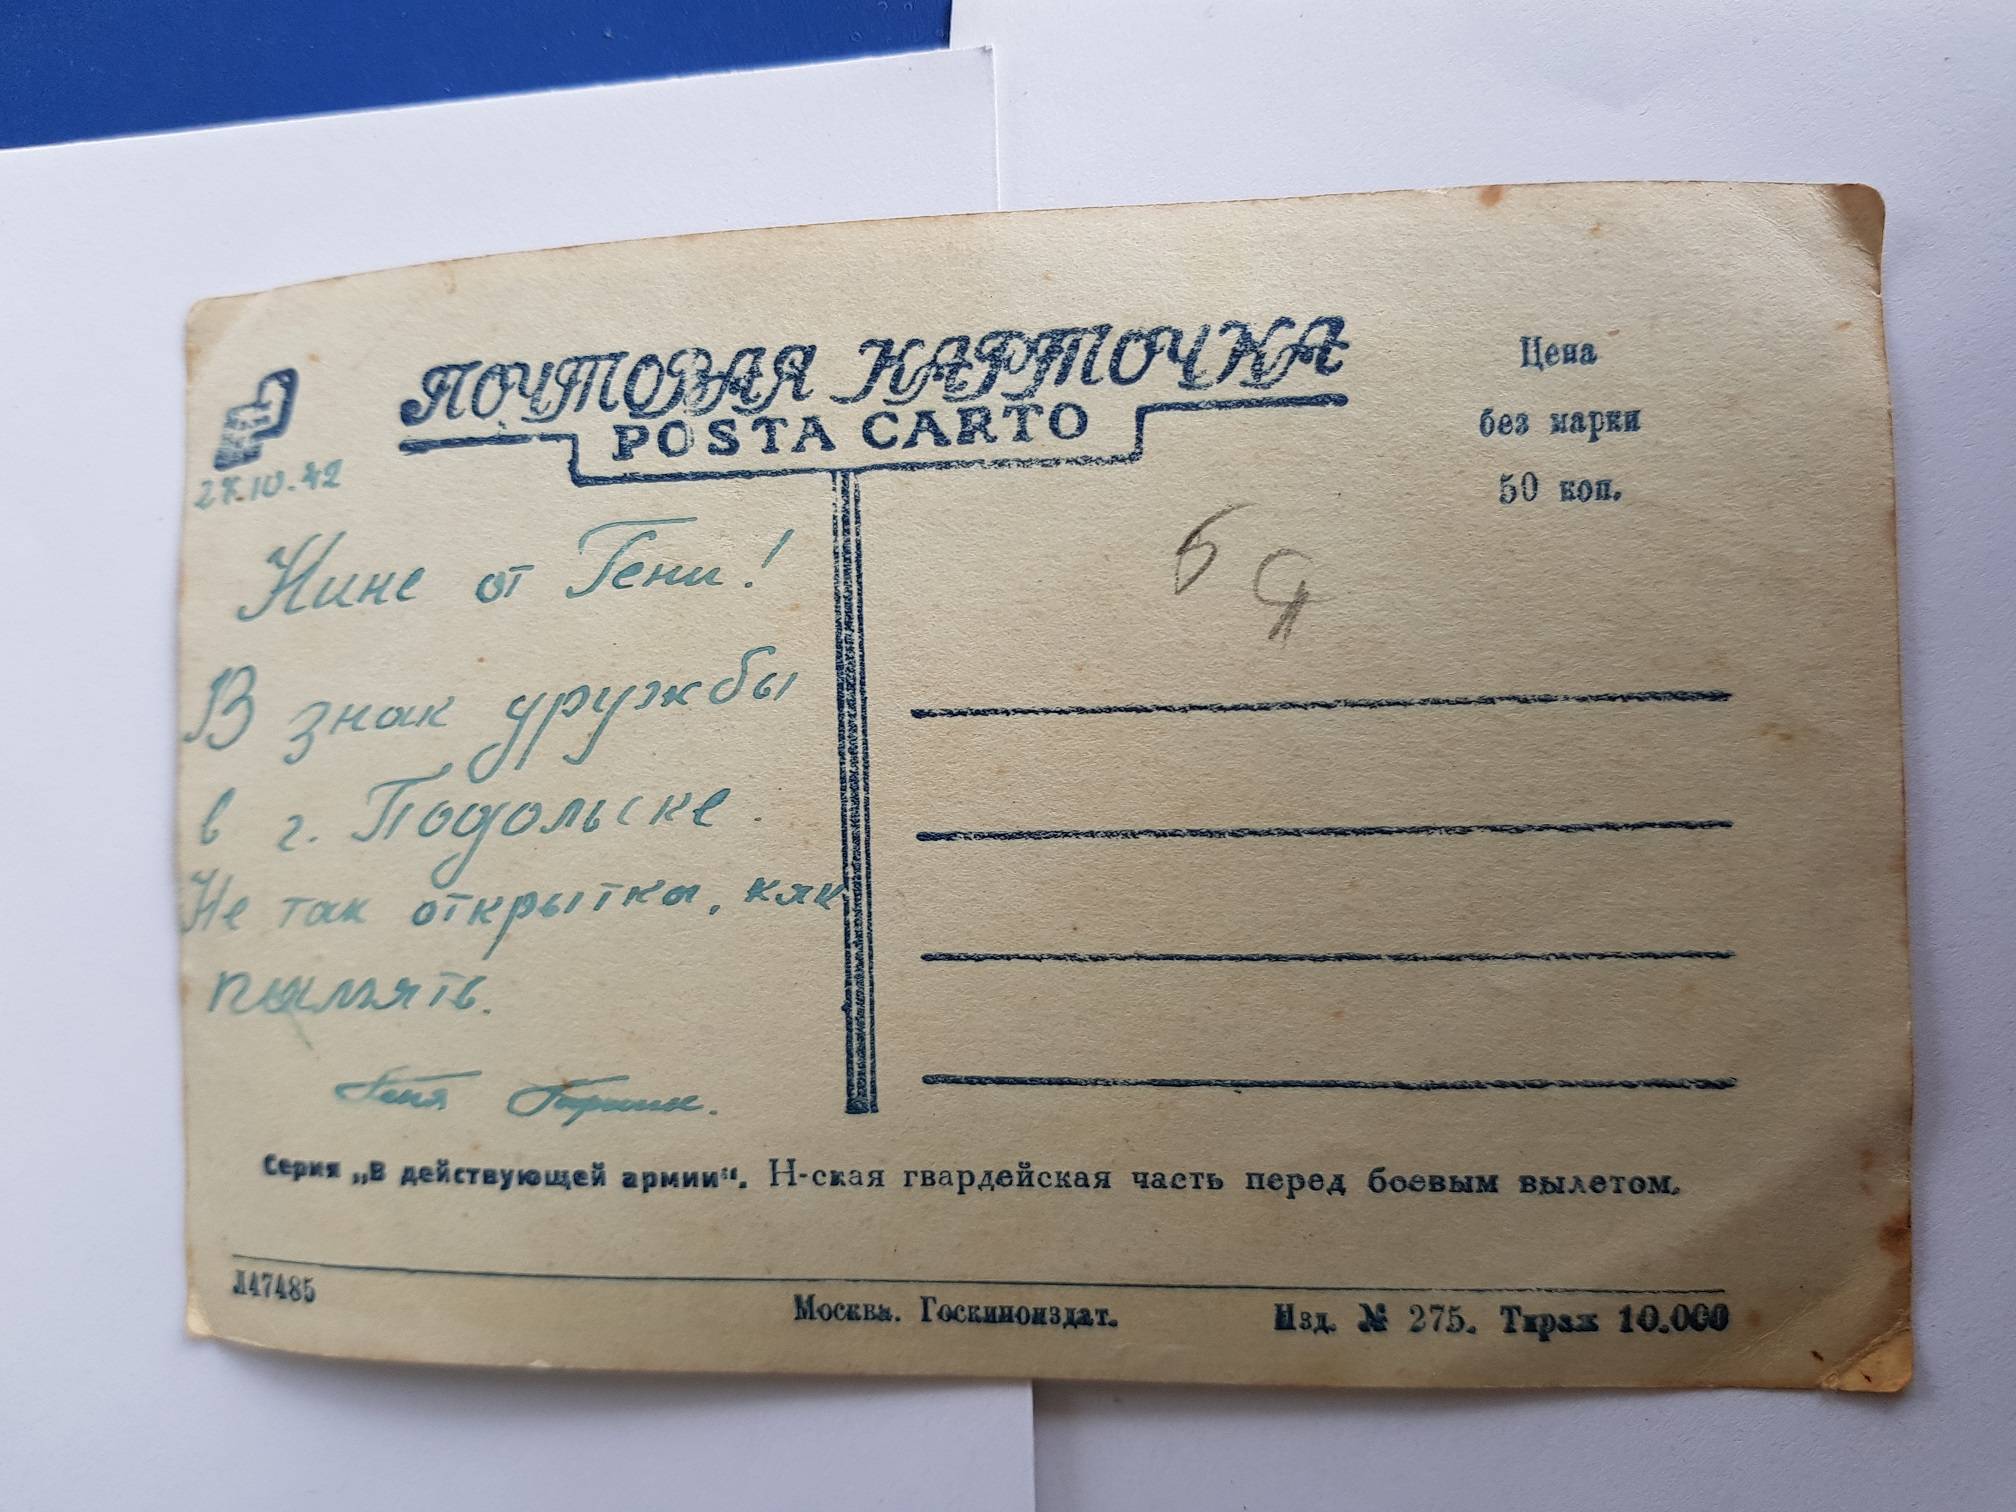 ПОЧТОВАЯ КАРТОЧКА
POSTA CARTO
Цена
без марки
50 коп.
27.10.42
Нине от Гени!
В знак дружбы
в г. Подольске.
Не так открытка, как
память.
Геня
Серия „В действующей армии“. Н-ская гвардейская часть перед боевым вылетом.
Л47485
Москва. Госкиноиздат.
Изд. № 275. Тираж 10.000